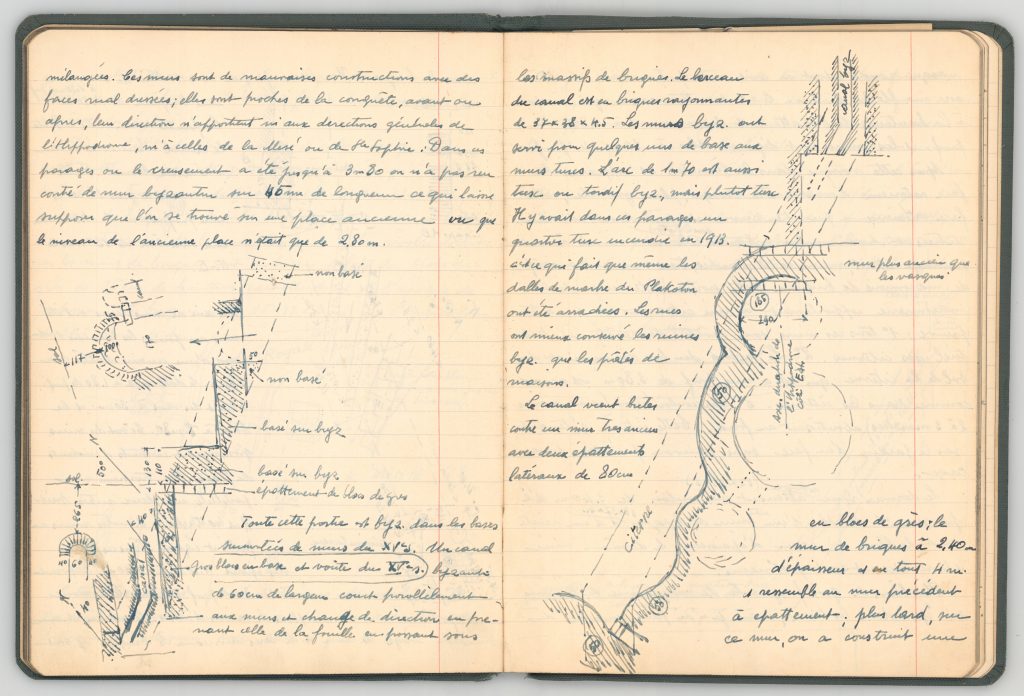 mélangées. Ces murs sont de mauvaises constructions avec des
faces mal dressées; elles sont proches de la conquête, avant ou
après, leur direction n'apportent ni aux directions générales de
l'Hippodrome, ni à celles de la Mesé ou de Ste Sophie. Dans ces
parages ou le creusement a été jusqu'à 3m30 on n'a pas ren
contré de mur byzantin sur 45m de longueur ce qui laisse
supposer que l'on se trouve sur une place ancienne ou que
le niveau de l'ancienne place n'était que de 2,80m.
non basé
sol
117
non basé
50
basé sur byz
N
500
130
110
basé sur byz
épattement de blocs de grès
sol
265
40 60
Toute cette partie est byz. dans les bases
surmontées de murs du XIes. Un canal
gros blocs en base et voûte du XIes. byzantin
canal
N
40
de 60cm de largeur court parallèlement
aux murs et change de direction en pre-
nant celle de la fouille en passant sous
les massifs de briques. Le berceau
du canal est en briques rayonnantes
de 37 x 38 x 4.5. Les murs byz. ont
servi pour quelques uns de base aux
murs turcs. L'arc de 1m70 est aussi
turc ou tardif byz, mais plutot turc
Il y avait dans ces parages un
quartier turc incendié en 1913.
ce qui fait que même les
dalles de marbre du Plakoton
ont été arrachées. Les rues
ont mieux conservé les ruines
byz. que les pâtés de
maisons.
Le canal vient butes
contre un mur tres ancien
avec deux épattements
latéraux de 80cm
canal byz
mur plus ancien que
les vasques
165
240
l'hippodrome
côté Est
citerne
en blocs de grès; le
mur de briques à 2,40m
d'épaisseur et en tout 4m
ressemble au mur précédent
à épattement; plus tard, sur
ce mur, on a construit une